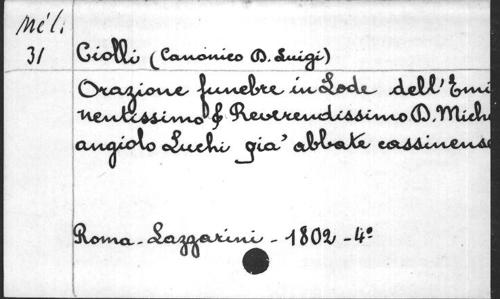 Mél.
31
Ciolli (Canonico D. Luigi)
Orazione funebre in Lode dell' Emi
nentissimo & Reverendissimo D. Mich
angiolo Luchi già abbate cassinense
Roma - Lazzarini - 1802 - 4º